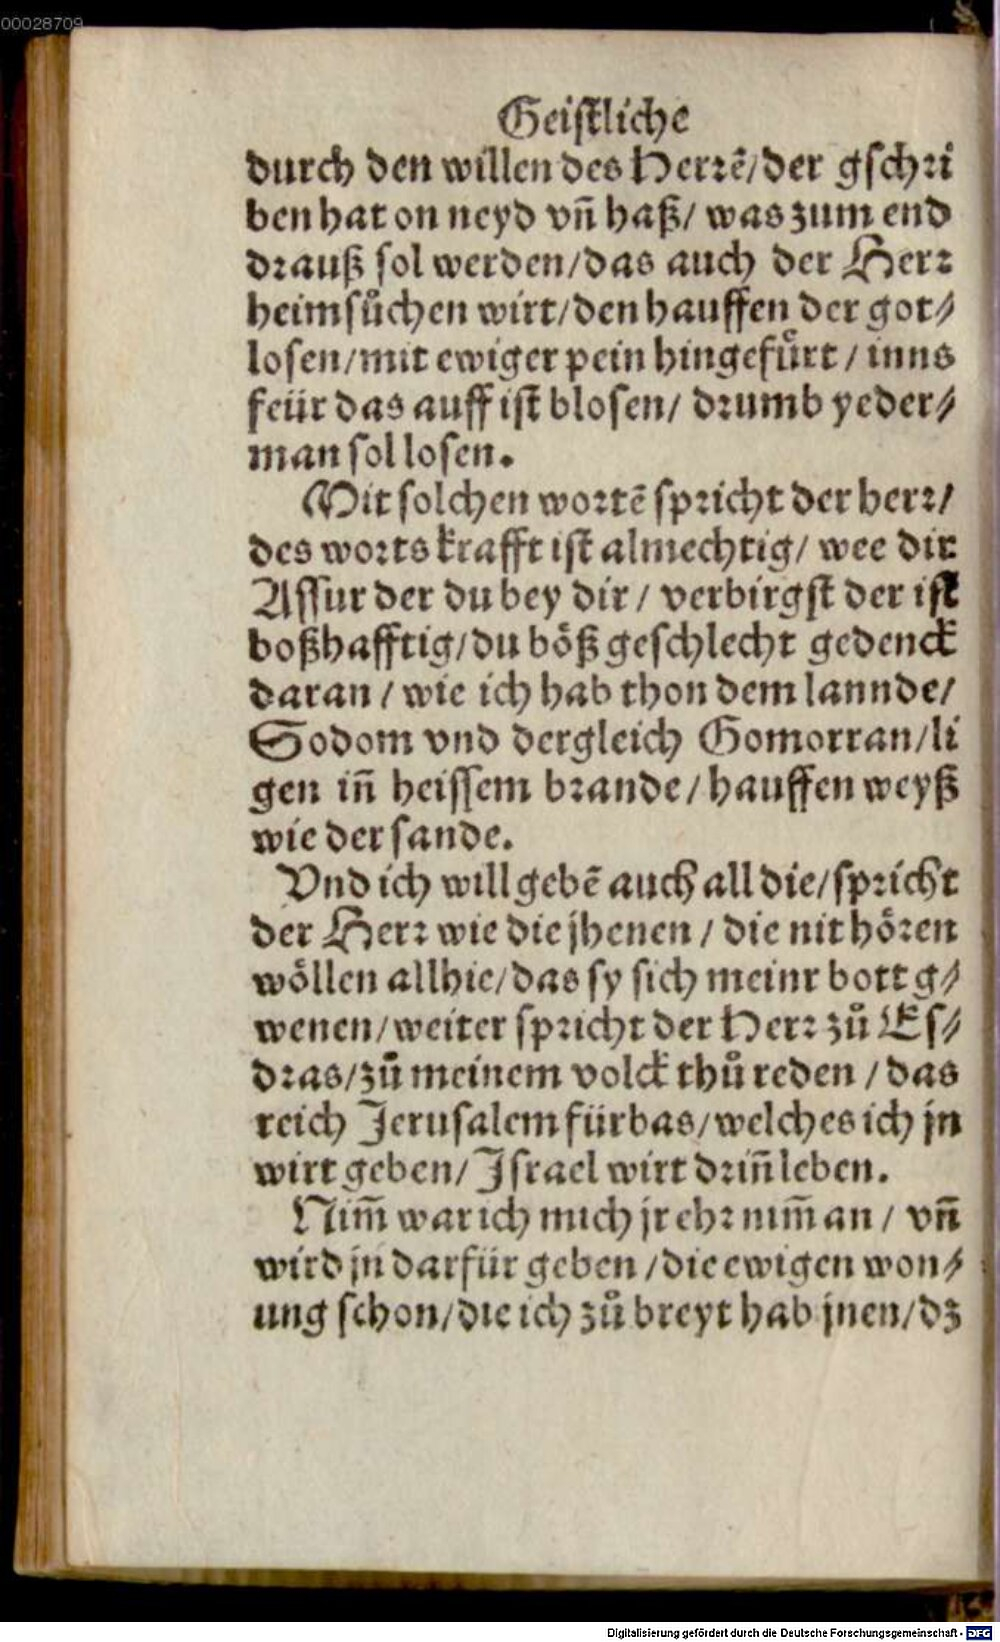 00028709
Geistliche
durch den willen des Herrē/der gschri
ben hat on neyd vñ haß/ was zum end
drauß sol werden/das auch der Herr
heimsůchen wirt/den hauffen der got⸗
losen/mit ewiger pein hingefuͤrt/ inns
feür das auff ist blosen/ drumb yeder⸗
man sol losen.
Mit solchen wortē spricht der herr/
des worts krafft ist almechtig/ wee dir
Assur der du bey dir/ verbirgst der ist
boßhafftig/du böß geschlecht gedenck
daran/ wie ich hab thon dem lannde/
Sodom vnd dergleich Gomorran/li
gen iñ heissem brande/hauffen weyß
wie der sande.
Vnd ich will gebē auch all die/spricht
der Herr wie die jhenen/ die nit hören
wöllen allhie/das sy sich meinr bott g⸗
wenen/weiter spricht der Herr zů Es⸗
dras/zů meinem volck thů reden/das
reich Jerusalem fürbas/welches ich jn
wirt geben/Israel wirt driñ leben.
Nim̄ war ich mich jr ehr nim̄ an/ vñ
wird jn darfür geben/die ewigen won⸗
ung schon/die ich zů breyt hab jnen/dz
Digitalisierung gefördert durch die Deutsche Forschungsgemeinschaft - DFG